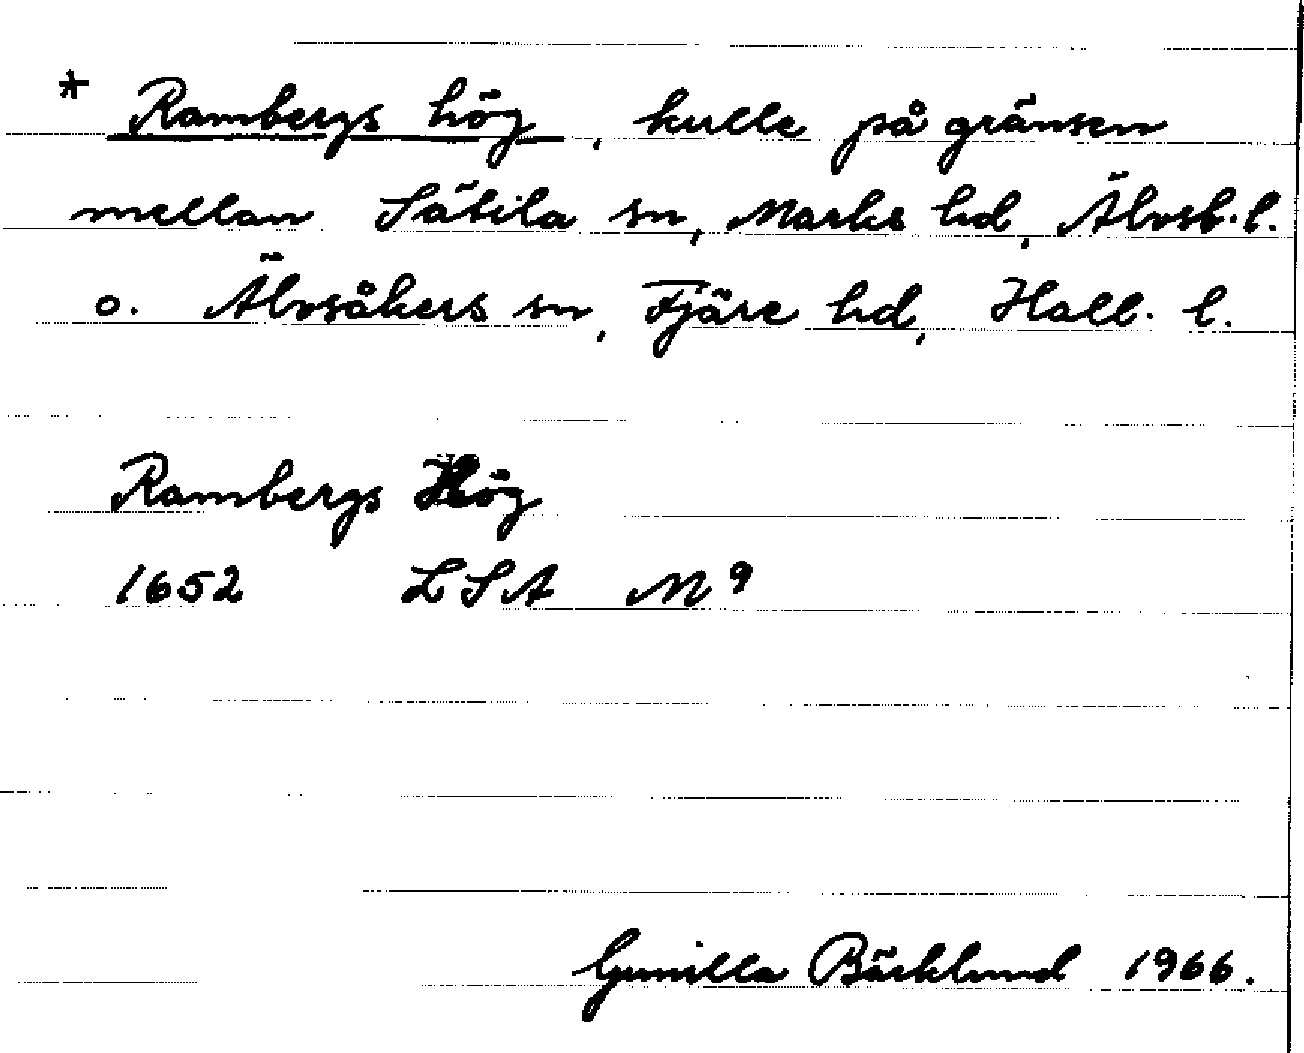 * Rambergs hög, kulle på gränsen
mellan Sätila sn, Marks hd, Älvsb. l.
o. Älvsåkers sn, Fjäre hd, Hall. l.
Rambergs Hög
1652 LSA M9
Gunilla Bäcklund 1966.